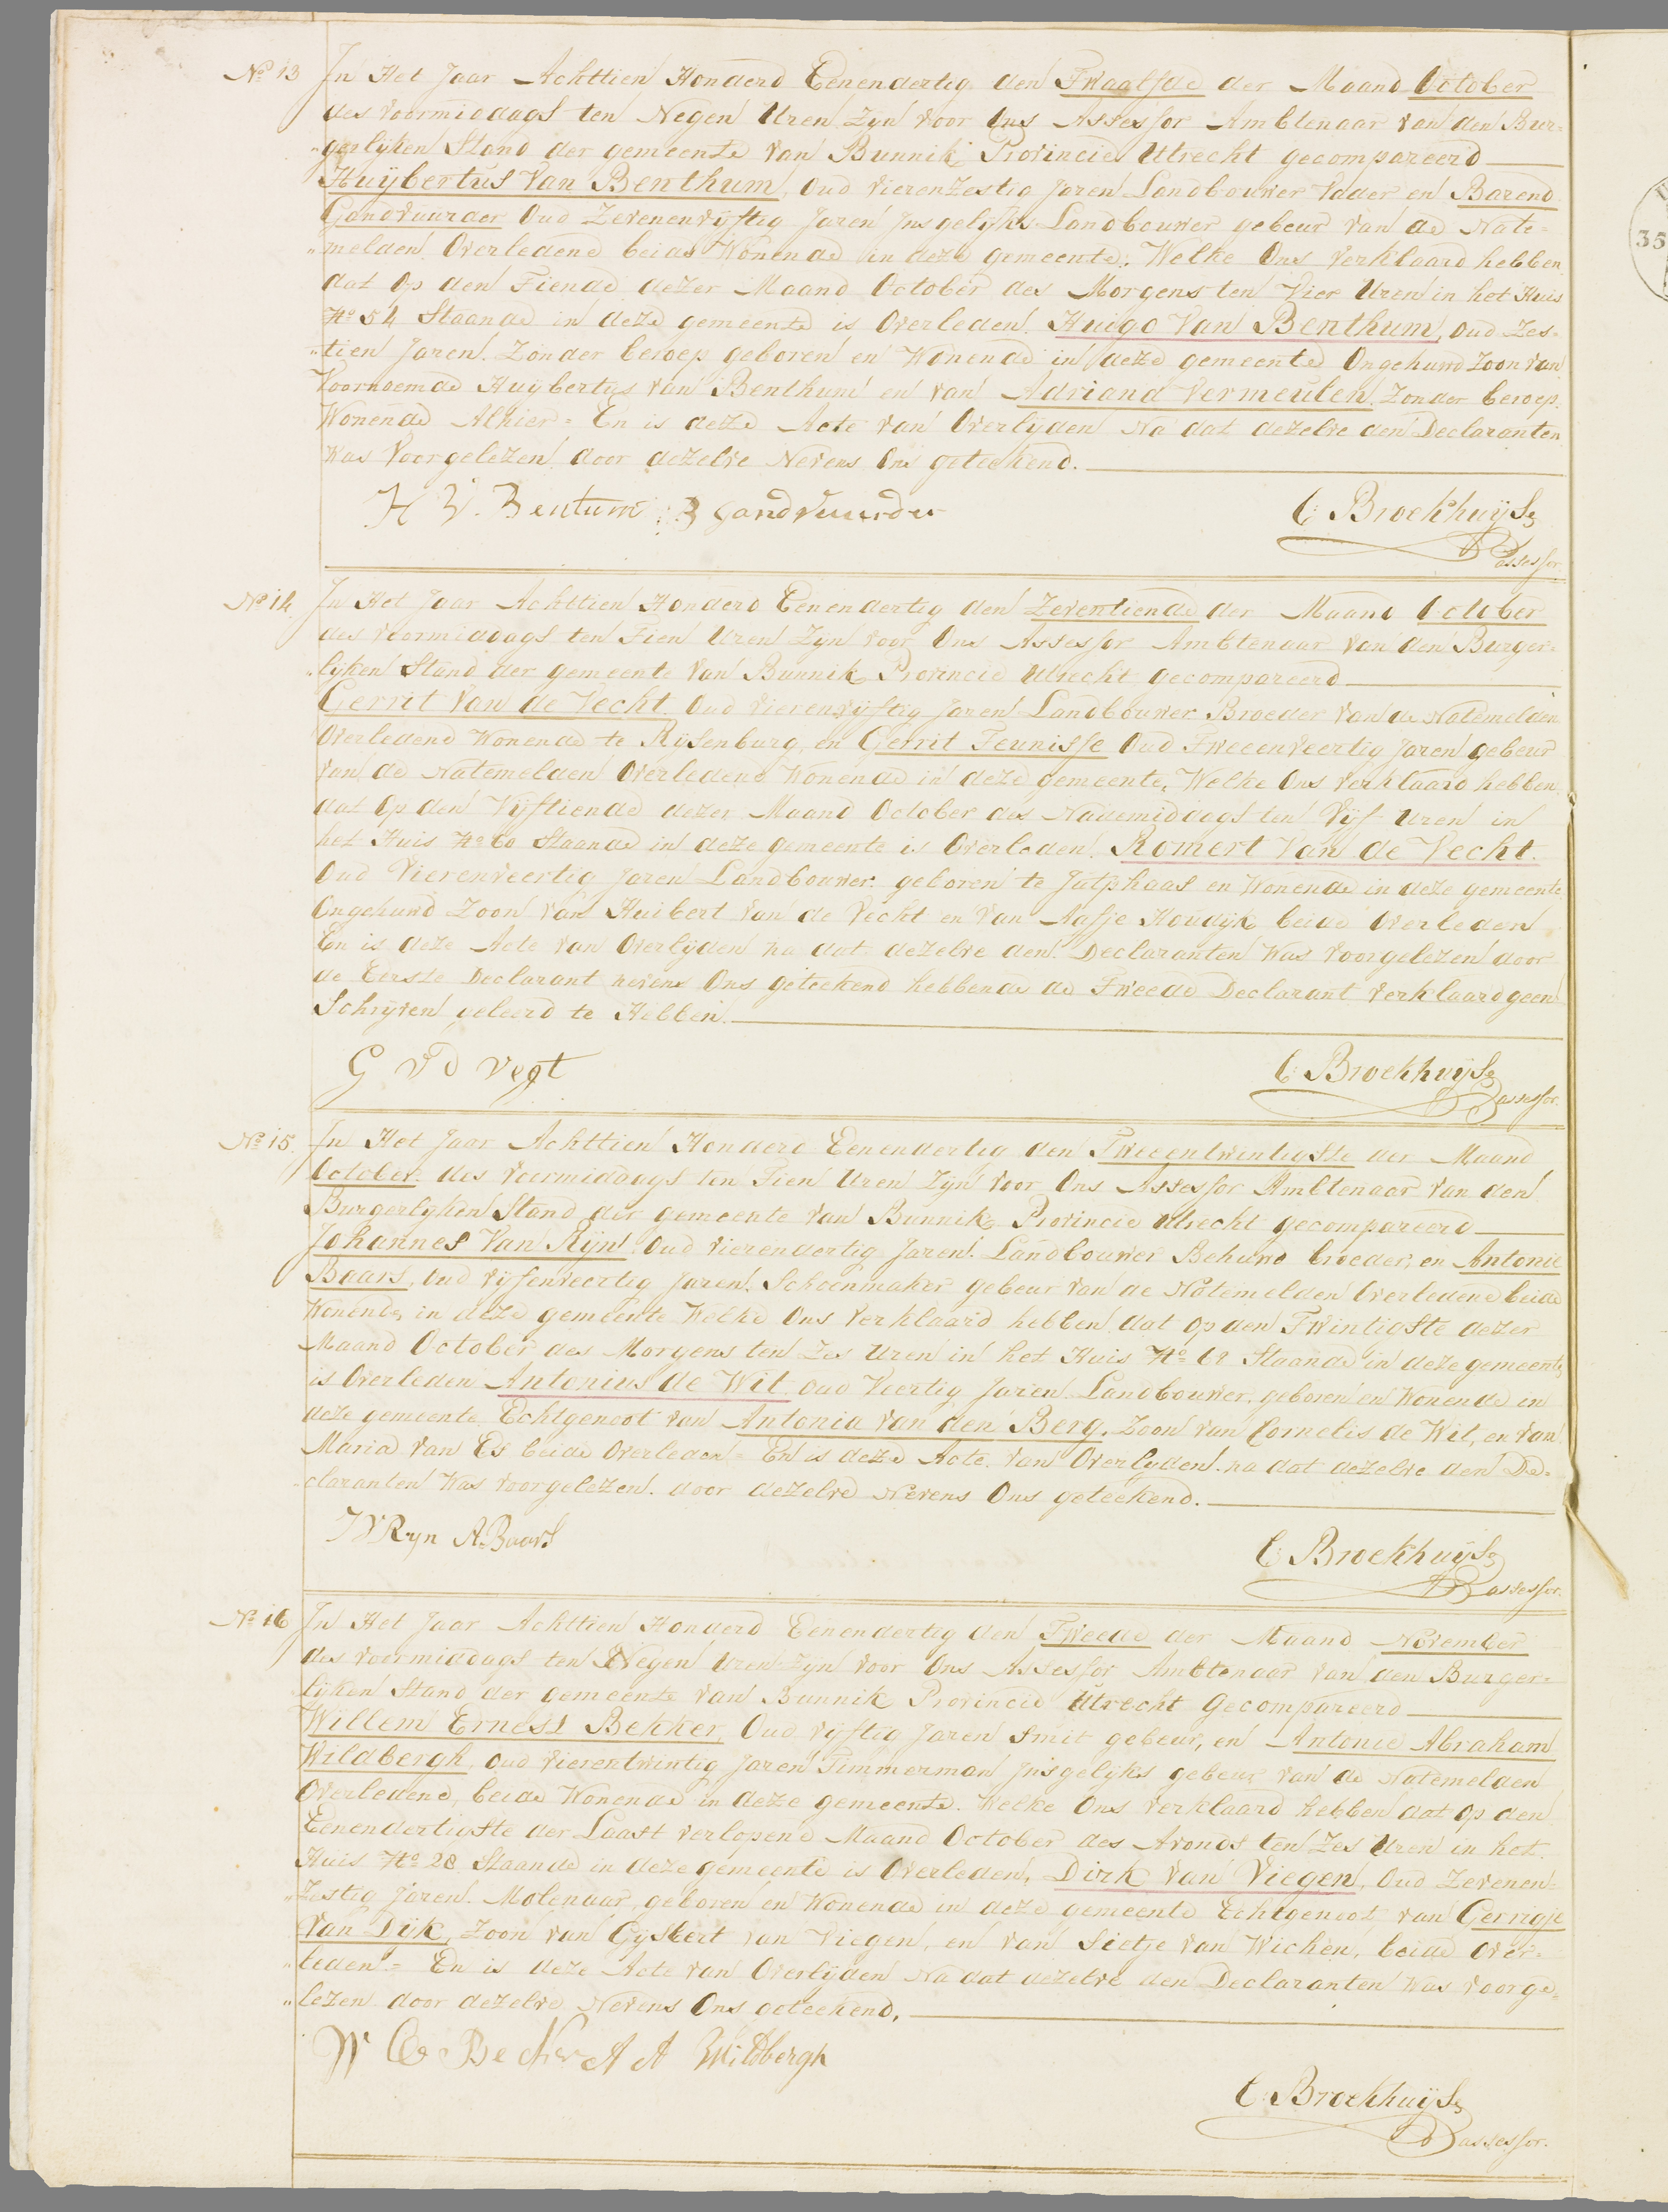 No 13 In Het Jaar Achttien Honderd Eenendertig den Twaalfde der Maand October
des voormiddags ten Negen Uren Zyn voor Ons Assessor Ambtenaar van den Bur=
"gerlyken Stand der gemeente van Bunnik Provincie Utrecht gecompareerd
Huijbertus Van Benthum, Oud vierenzestig Jaren Landbouwer Vader en Barend
Gandvuurder Oud Zevenenvijftig Jaren Insgelijks Landbouwer gebeur van de Nate=
"melden Overledene beide Wonende in deze gemeente, Welke Ons verklaard hebben
dat Op den Tiende dezer Maand October des Morgens ten Vier Uren in het Huis
No 54 Staande in deze gemeente is Overleden. Huigo Van Benthum, oud Zes=
"tien Jaren. Zonder beroep geboren en Wonende in deze gemeente Ongehuwd Zoon van
Voornoemde Huijbertus van Benthum en van Adriana Vermeulen. Zonder beroep.
Wonende Alhier = En is deze Acte van Overlijden Na dat dezelve den Declaranten
was Voorgelezen door dezelve Nevens Ons geteekend.
H V. Bentum B gandvuurder C: Broekhuijse
assessor
No 14. In Het Jaar Achttien Honderd Eenendertig den Zeventiende der Maand October
des voormiddags ten Tien Uren Zyn voor Ons Assessor Ambtenaar van den Burger=
"lyken Stand der gemeente van Bunnik Provincie Utrecht gecompareerd
Gerrit Van de Vecht Oud vierenvijftig Jaren Landbouwer Broeder van de Natemelden
Overledene Wonende te Rijsenburg, en Gerrit Teunisse Oud Tweeenveertig Jaren gebeur
van de Natemelden Overledene Wonende in deze gemeente, Welke Ons verklaard hebben
dat Op den Vijftiende dezer Maand October des Nademiddags ten Vijf Uren in
het Huis No 60 Staande in deze gemeente is Overleden. Romert Van de Vecht.
Oud Vierenveertig Jaren Landbouwer. geboren te Jutphaas en Wonende in deze gemeente
Ongehuwd Zoon van Huibert van de Vecht en van Aafje Houdijk beide Overleden
En is deze Acte van Overlijden na dat dezelve den Declaranten Was voorgelezen door
de Eerste Declarant nevens Ons geteekend hebbende de Tweede Declarant verklaard geen
Schrijven geleerd te Hebben.
G v d Vegt C: Broekhuijse
assessor.
No 15. In Het Jaar Achttien Honderd Eenendertig den Tweeentwintigste der Maand
October. des voormiddags ten Tien Uren Zyn voor Ons Assessor Ambtenaar van den
Burgerlyken Stand der gemeente van Bunnik Provincie Utrecht gecompareerd
Johannes Van Rijn Oud vierendertig Jaren. Landbouwer Behuwd broeder, en Antonie
Baars, Oud vijfenveertig Jaren. Schoenmaker gebeur van de Natemelden Overledene beide
Wonende, in deze gemeente Welke Ons verklaard hebben dat Op den Twintigste dezer
Maand October des Morgens ten Zes Uren in het Huis No 62 Staande in deze gemeente
is Overleden Antonius de Wit. oud Veertig Jaren Landbouwer, geboren en Wonende in
deze gemeente Echtgenoot van Antonia van den Berg. Zoon van Cornelis de Wit, en van
Maria van Es beide Overleden = En is deze Acte van Overlyden. na dat dezelve den De=
claranten Was voorgelezen. door dezelve Nevens Ons geteekend.
J V Ryn A. Baars C: Broekhuijse
assessor.
No 16 In Het Jaar Achttien Honderd Eenendertig den Tweede der Maand November
des voormiddags ten Negen Uren Zyn voor Ons Assessor Ambtenaar van den Burger=
lijken Stand der gemeente van Bunnik Provincie Utrecht Gecompareerd
Willem Ernest Bekker, Oud vijftig Jaren Smit gebeur, en Antonie Abraham
Wildbergh, oud vierentwintig Jaren Timmerman Insgelijks gebeur van de Natemelden
Overledene, beide Wonende in deze gemeente. Welke Ons verklaard hebben dat Op den
Eenendertigste der Laast verlopene Maand October des Avonds ten Zes Uren in het
Huis No 28 Staande in deze gemeente is Overleden, Dirk Van Viegen, Oud Zevenen=
"Zestig Jaren. Molenaar, geboren en Wonende in deze gemeente Echtgenoot van Gerrigje
Van Dijk, Zoon van Gijsbert van Viegen, en van Sietje van Wichen, beide Over=
"leden = En is deze Acte van Overlijden Na dat dezelve den Declaranten was voorge=
"lezen door dezelve Nevens Ons geteekend,
W E Bekker A A Wildbergh
C: Broekhuijse
assessor.
35